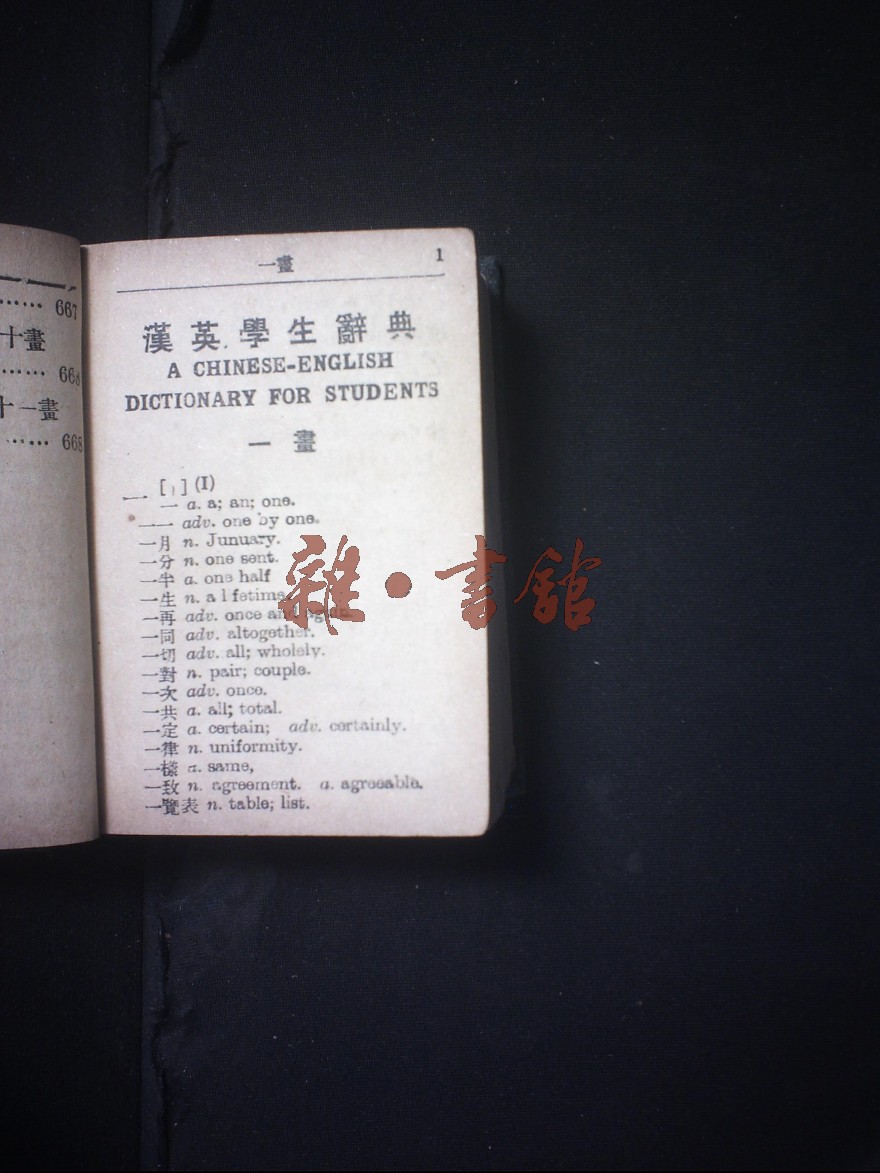 …… 667
十畫
…… 668
十一畫
…… 668
一畫 1
漢英學生辭典
A CHINESE-ENGLISH
DICTIONARY FOR STUDENTS
一畫
一 [ ] (I)
一 a. a; an; one.
一一 adv. one by one.
一月 n. Junuary.
一分 n. one sent.
一半 a. one half
一生 n. a lfetime
一再 adv. once and again.
一同 adv. altogether.
一切 adv. all; wholely.
一對 n. pair; couple.
一次 adv. once.
一共 a. all; total.
一定 a. certain; adv. certainly.
一律 n. uniformity.
一樣 a. same,
一致 n. agreement. a. agreeable.
一覽表 n. table; list.
雜·書館